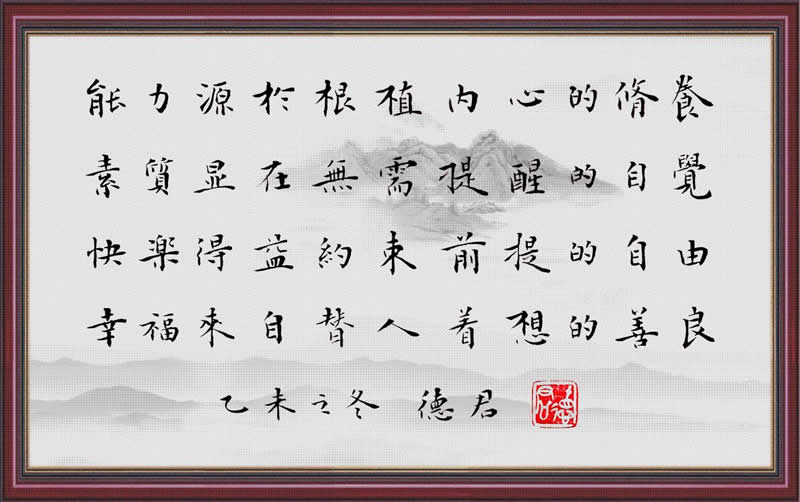 能力源於根植内心的脩養
素質显在無需提醒的自覺
快楽得益約束前提的自由
幸福來自替人着想的善良
乙未之冬 德君